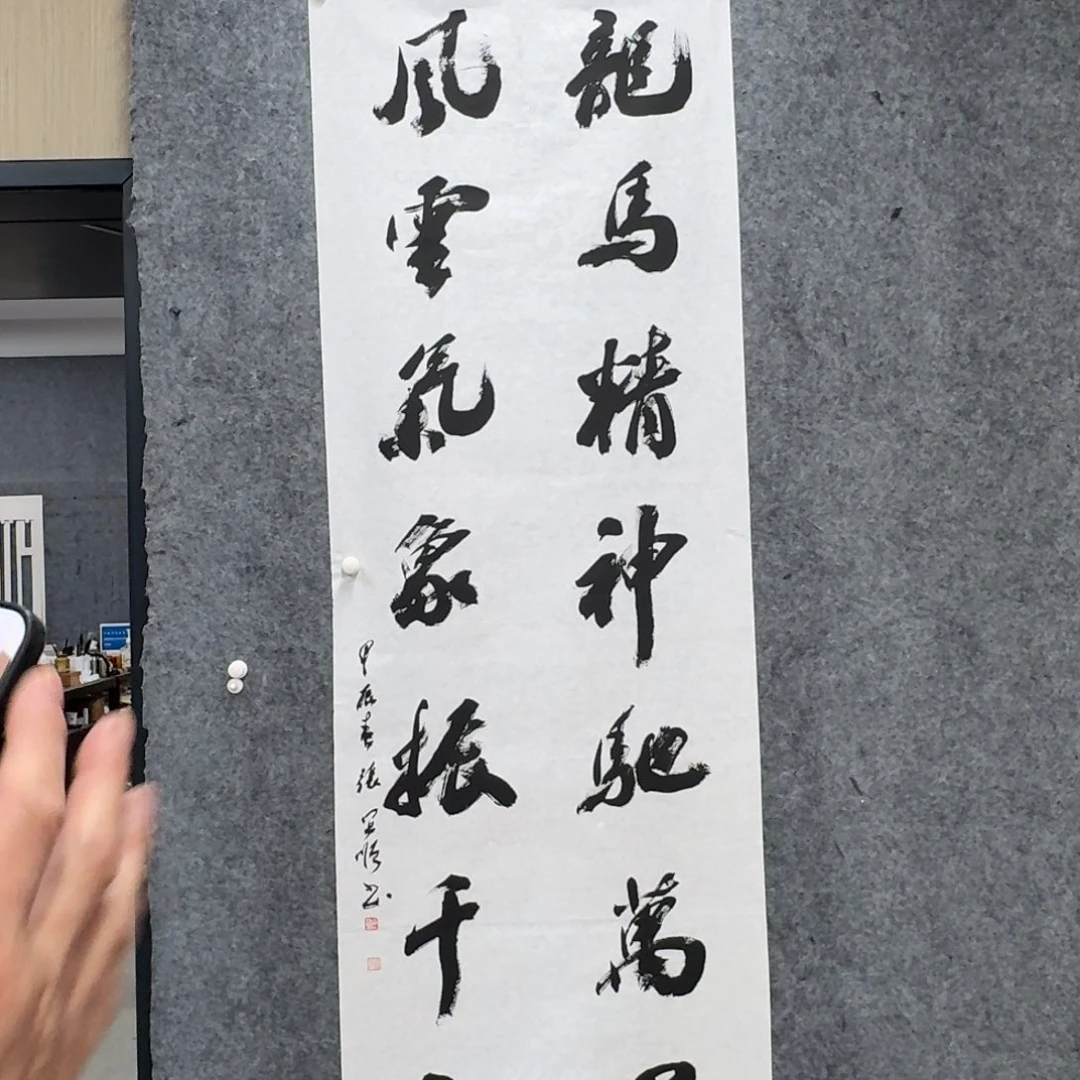 龍馬精神馳萬
風雲氣象振千
甲辰春張
書